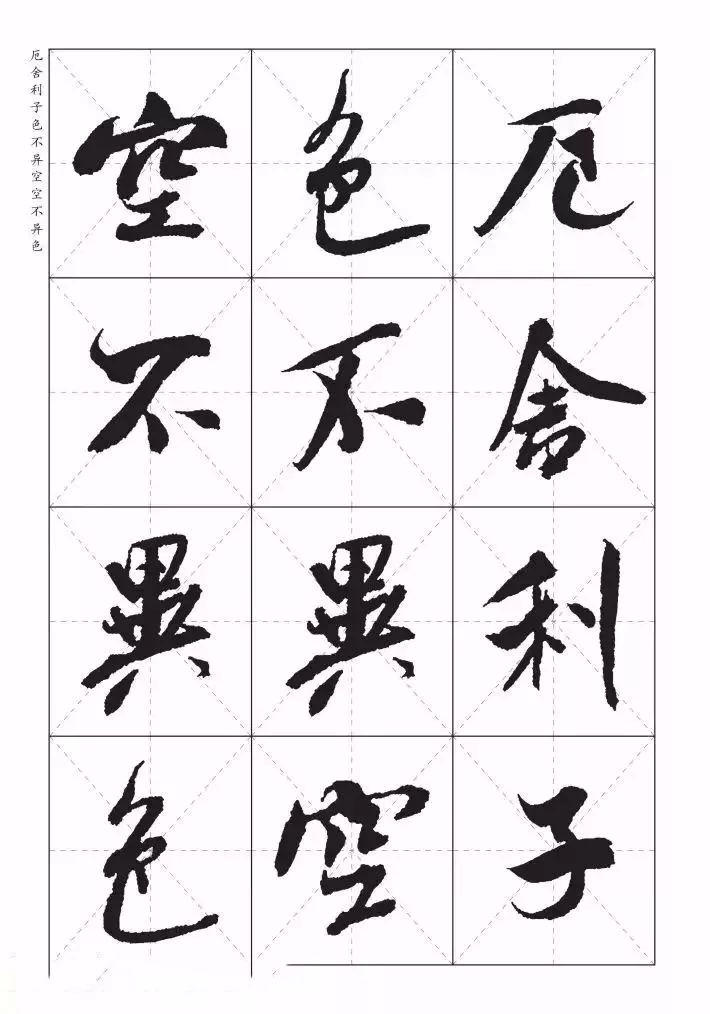 厄舍利子
色不異空
空不異色
厄舍利子色不异空空不异色